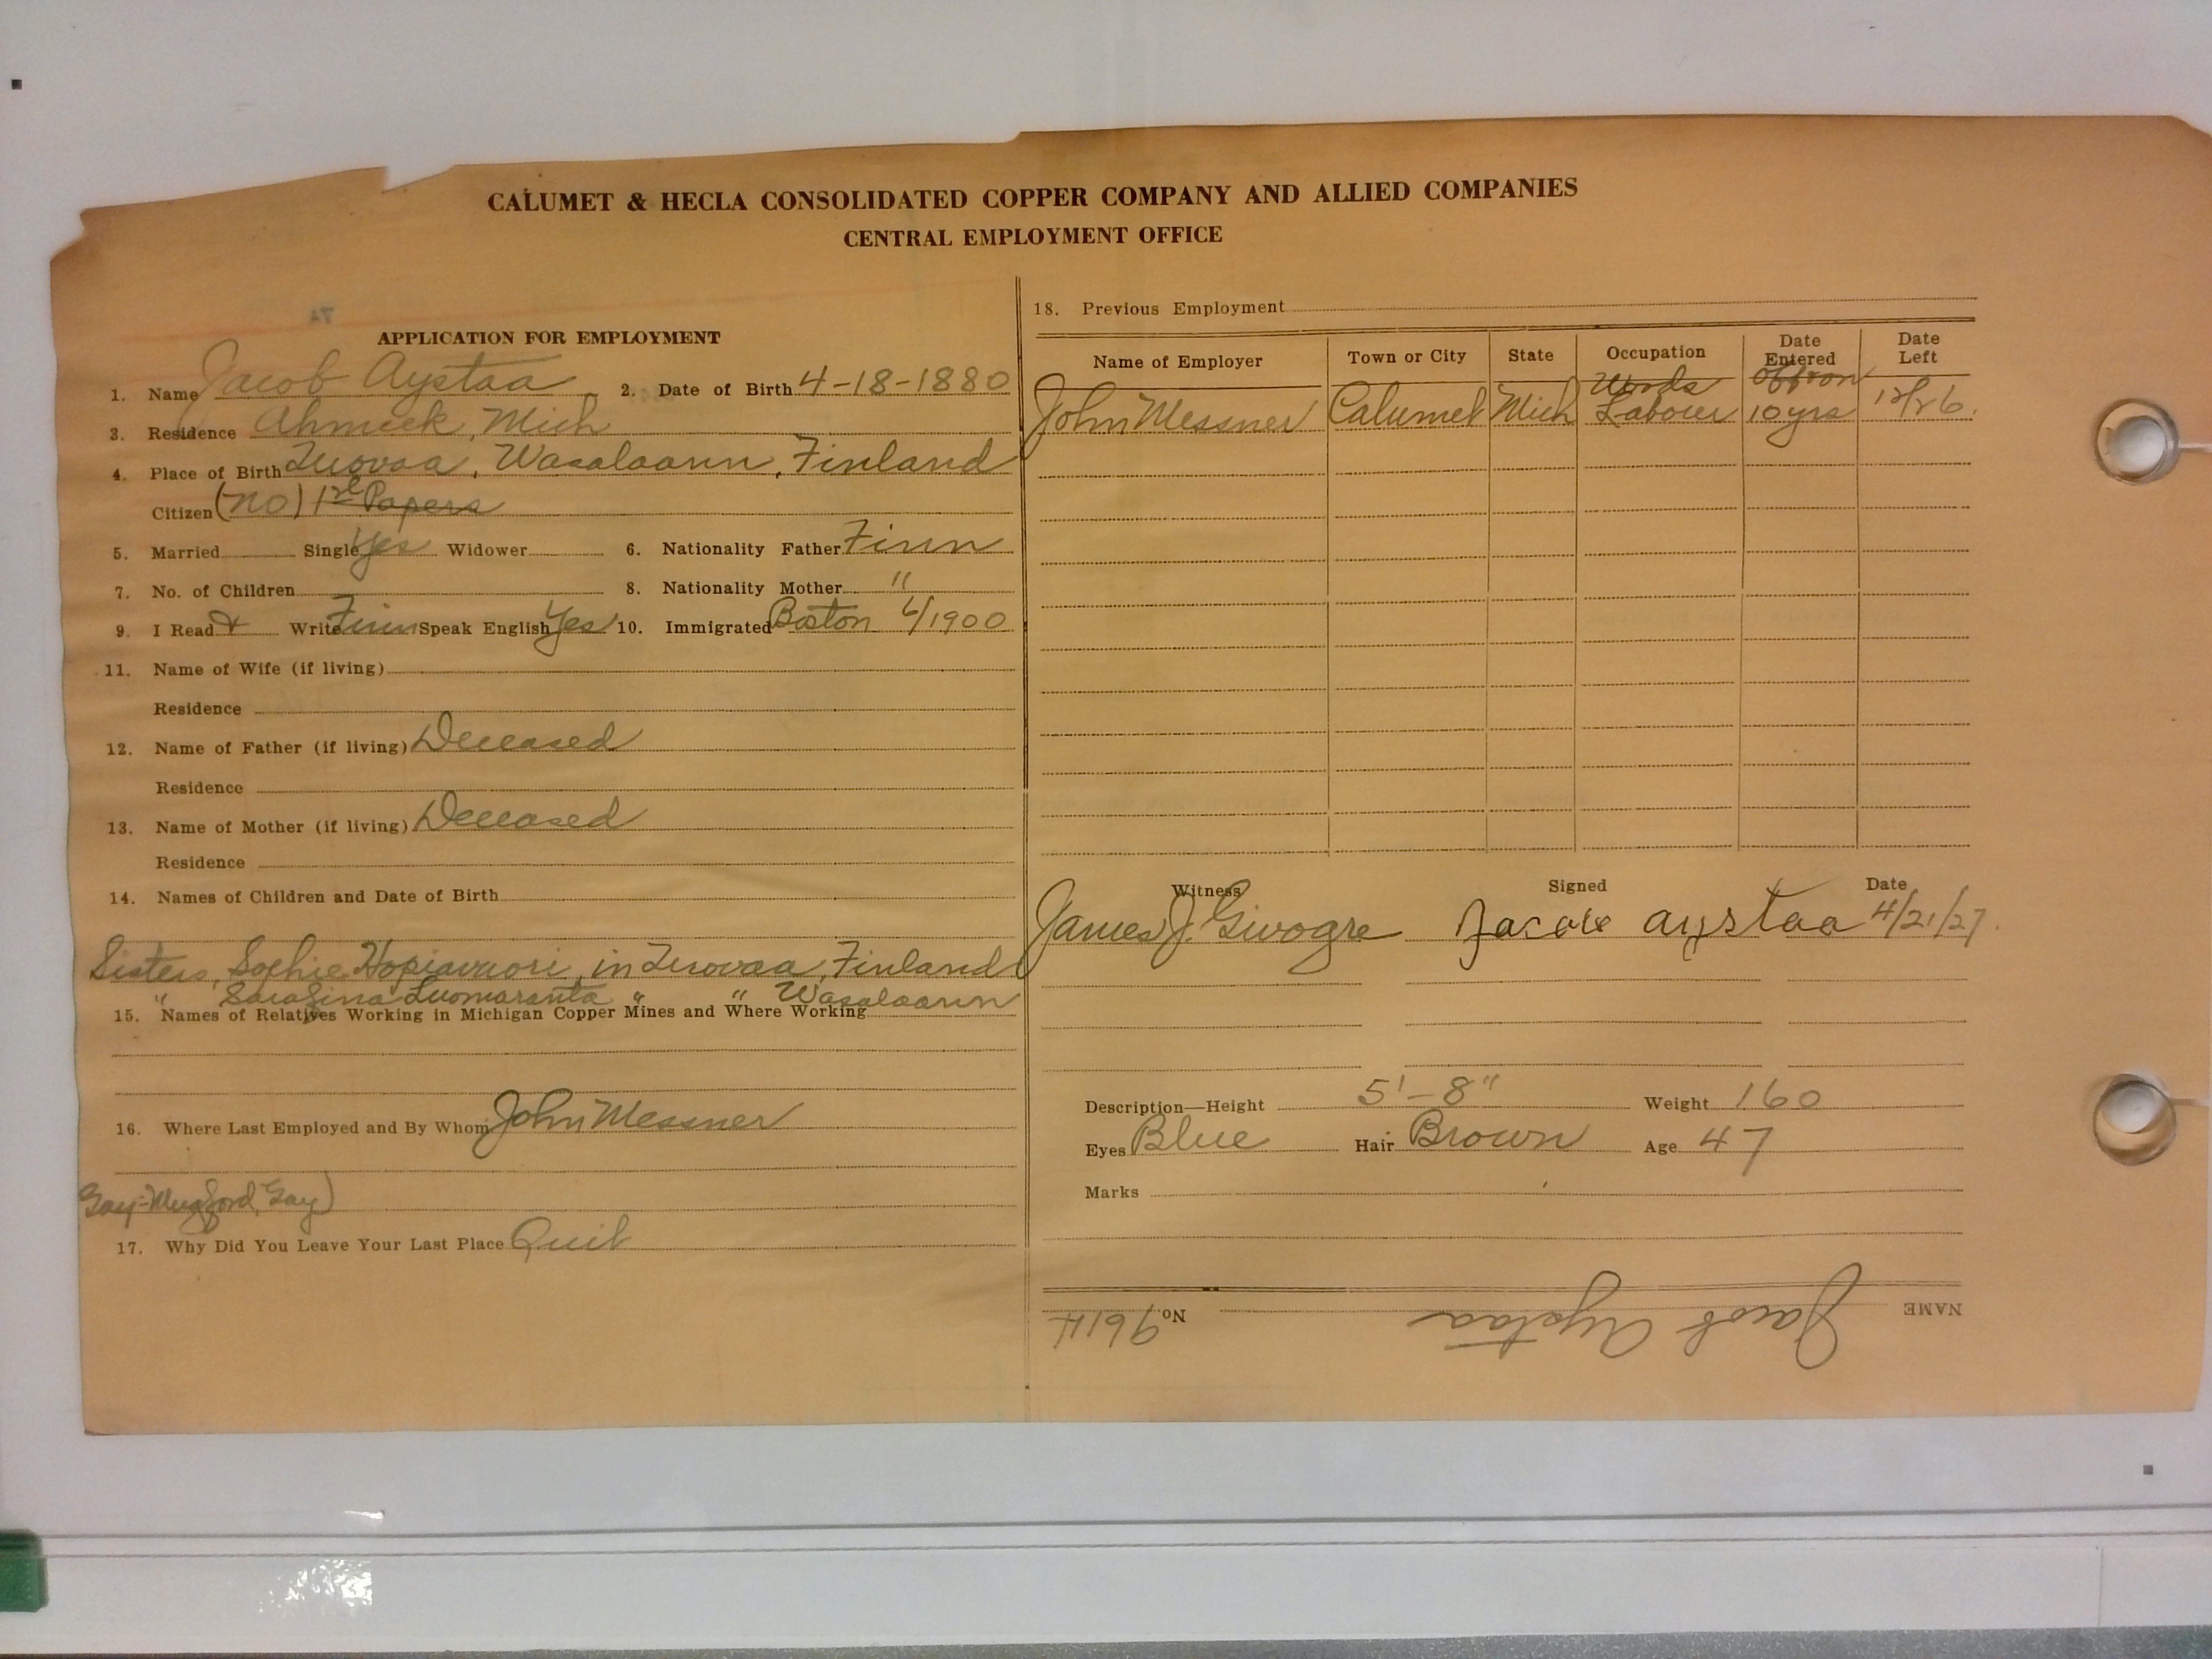 CALUMET & HECLA CONSOLIDATED COPPER COMPANY AND ALLIED COMPANIES
CENTRAL EMPLOYMENT OFFICE
APPLICATION FOR EMPLOYMENT
1. Name Jacob Aystaa 2. Date of Birth 4-18-1880
3. Residence Ahmeek, Mich
4. Place of Birth Luovaa, Wasalaann, Finland
Citizen (no) 1st Papers
5. Married Single Yes Widower 6. Nationality Father Finn
7. No. of Children 8. Nationality Mother "
9. I Read & Write Finn Speak English Yes 10. Immigrated Boston 6/1900
11. Name of Wife (if living)
Residence
12. Name of Father (if living) Deceased
Residence
13. Name of Mother (if living) Deceased
Residence
14. Names of Children and Date of Birth
Sisters, Sophie Hopiavuori, in Luovaa, Finland
" Sarafina Luomaranta " " Wasalaann
15. Names of Relatives Working in Michigan Copper Mines and Where Working
16. Where Last Employed and By Whom John Messner
Gay-Mugford, Gay)
17. Why Did You Leave Your Last Place Quit
18. Previous Employment
Name of Employer Town or City State Occupation Date Entered Date Left
John Messner Calumet Mich Woods Labour Off & on 10 yrs 12/26.
Witness Signed Date
James J. Givogre Jacob aystaa 4/21/27.
Description—Height 5'-8" Weight 160
Eyes Blue Hair Brown Age 47
Marks
NAME Jacob Aystaa No.